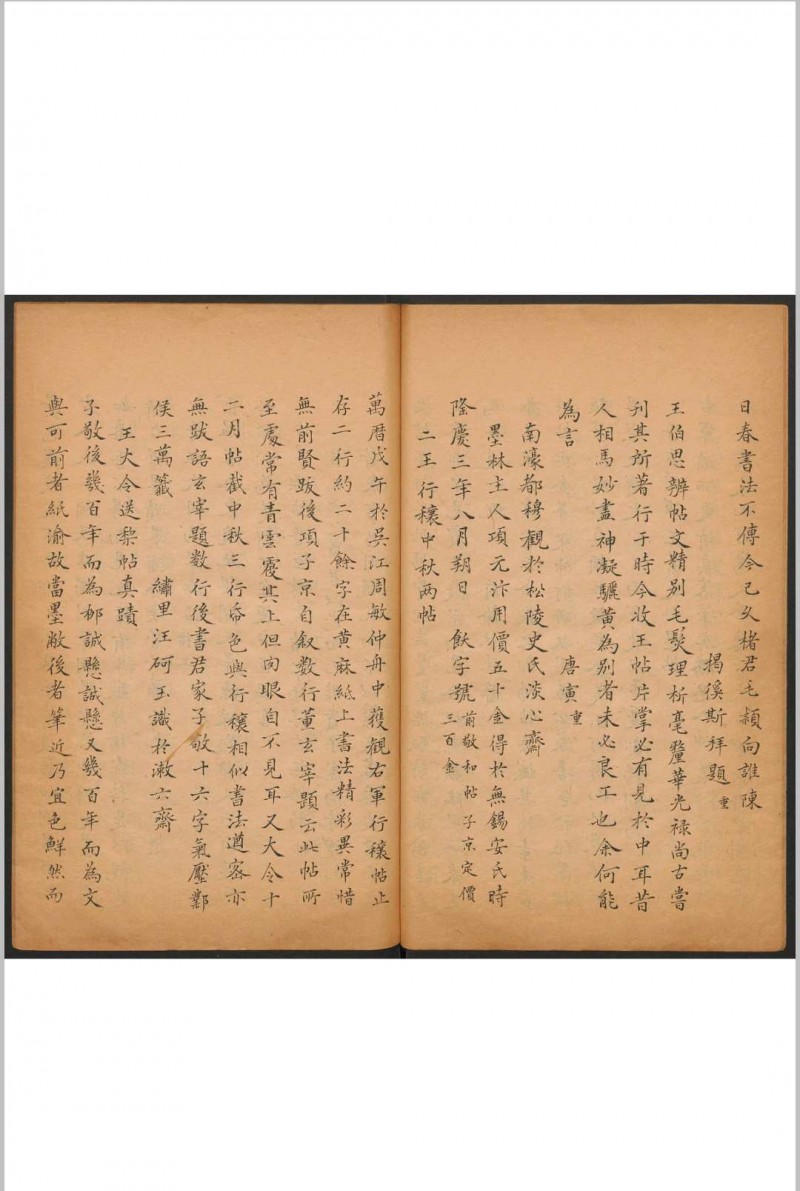 日春書法不傳今已久楮君毛穎向誰陳
揭徯斯拜題重
王伯思辨帖文精別毛髮理析毫釐華光祿尚古嘗
刋其所著行于時今妝王帖片掌必有見於中耳昔
人相馬妙盡神凝驪黃為別者未必良工也余何能
為言　唐寅重
南濠都穆觀於松陵史氏淡心齋
墨林主人項元汴用價五十金得於無錫安氏時
隆慶三年八月朔日　飫字號前敬和帖子京定價
三百金
二王行穰中秋兩帖
萬曆戊午於吳江周敏仲舟中獲觀右軍行穰帖止
存二行約二十餘字在黃麻紙上書法精彩異常惜
無前賢跋後項子京自叙數行董玄宰題云此帖所
至處常有青雲覆其上但肉眼自不見耳又大令十
二月帖截中秋三行帋色與行穰相似書法遒客亦
無跋語玄宰題數行後書君家子敬十六字氣壓鄴
侯三萬籤　繡里汪砢玉識於漱六齋
王大令送梨帖真蹟
子敬後幾百年而為栁誠懸誠懸又幾百年而為文
與可前者紙渝故當墨敝後者筆近乃宜色鮮然而